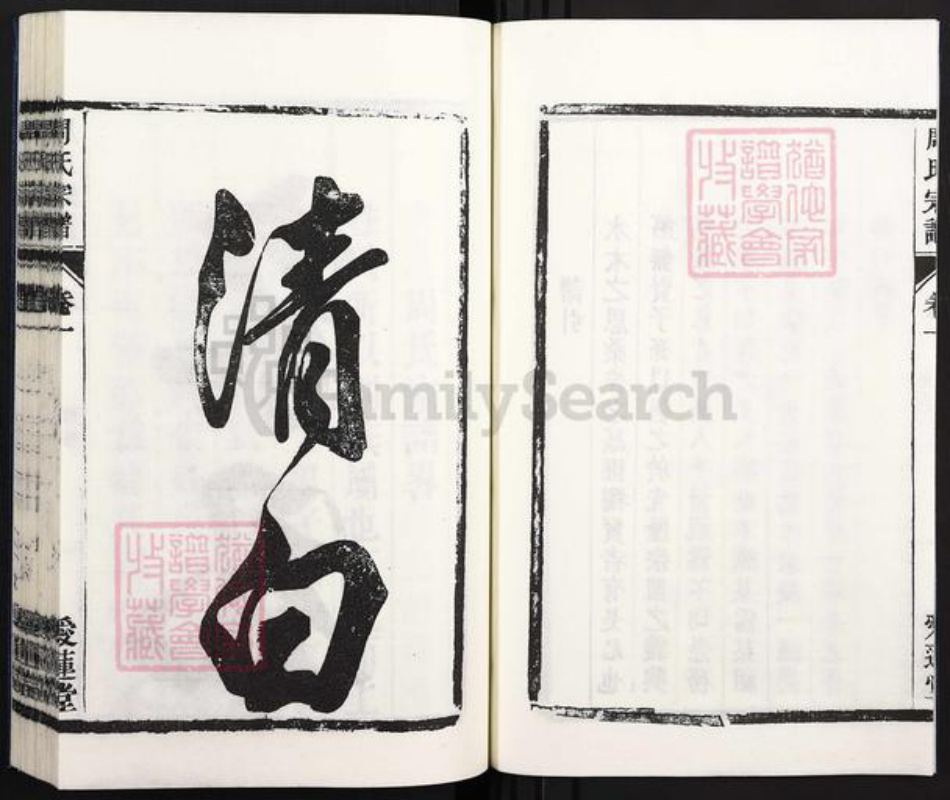 周氏宗譜
卷一
愛蓮堂
猶他家
譜學會
收藏
清白
猶他家
譜學會
收藏
周氏宗譜
卷一
愛蓮堂
FamilySearch